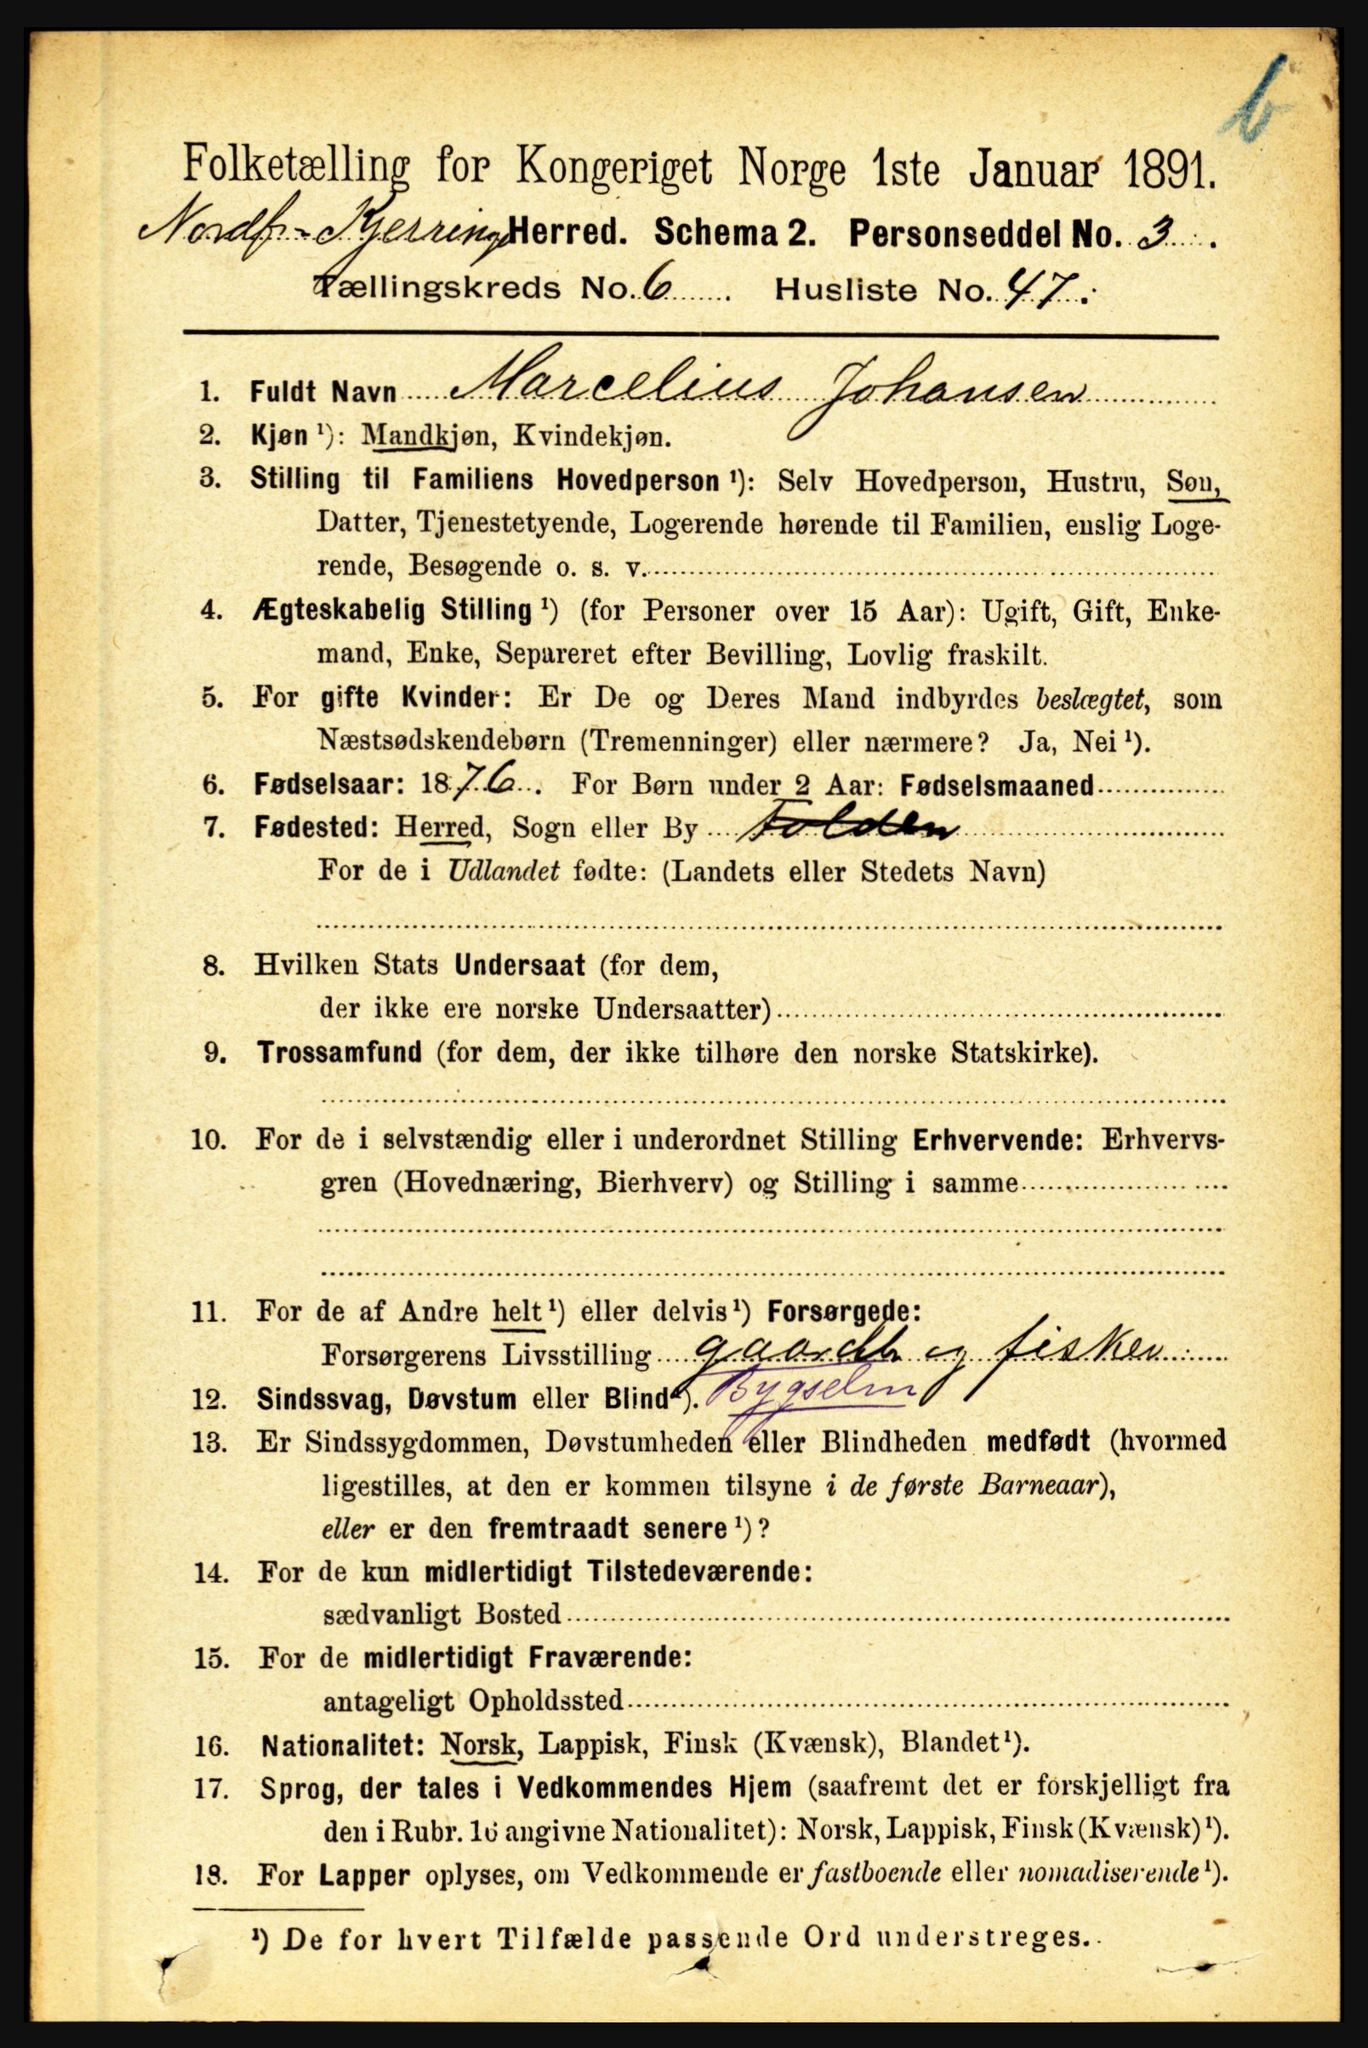 b
Folketælling for Kongeriget Norge 1ste Januar 1891.
Nordf.-Kjerringø Herred. Schema 2. Personseddel No. 3.
Tællingskreds No. 6. Husliste No. 47.
1. Fuldt Navn Marcelius Johansen
2. Kjøn ¹): Mandkjøn, Kvindekjøn.
3. Stilling til Familiens Hovedperson ¹): Selv Hovedperson, Hustru, Søn,
Datter, Tjenestetyende, Logerende hørende til Familien, enslig Loge-
rende, Besøgende o. s. v.
4. Ægteskabelig Stilling ¹) (for Personer over 15 Aar): Ugift, Gift, Enke-
mand, Enke, Separeret efter Bevilling, Lovlig fraskilt.
5. For gifte Kvinder: Er De og Deres Mand indbyrdes beslægtet, som
Næstsødskendebørn (Tremenninger) eller nærmere? Ja, Nei ¹).
6. Fødselsaar: 1876. For Børn under 2 Aar: Fødselsmaaned
7. Fødested: Herred, Sogn eller By Folden
For de i Udlandet fødte: (Landets eller Stedets Navn)
8. Hvilken Stats Undersaat (for dem,
der ikke ere norske Undersaatter)
9. Trossamfund (for dem, der ikke tilhøre den norske Statskirke).
10. For de i selvstændig eller i underordnet Stilling Erhvervende: Erhvervs-
gren (Hovednæring, Bierhverv) og Stilling i samme
11. For de af Andre helt ¹) eller delvis ¹) Forsørgede:
Forsørgerens Livsstilling gaardb og fisker
12. Sindssvag, Døvstum eller Blind ¹). Bygselm
13. Er Sindssygdommen, Døvstumheden eller Blindheden medfødt (hvormed
ligestilles, at den er kommen tilsyne i de første Barneaar),
eller er den fremtraadt senere ¹)?
14. For de kun midlertidigt Tilstedeværende:
sædvanligt Bosted
15. For de midlertidigt Fraværende:
antageligt Opholdssted
16. Nationalitet: Norsk, Lappisk, Finsk (Kvænsk), Blandet ¹).
17. Sprog, der tales i Vedkommendes Hjem (saafremt det er forskjelligt fra
den i Rubr. 16 angivne Nationalitet): Norsk, Lappisk, Finsk (Kvænsk) ¹).
18. For Lapper oplyses, om Vedkommende er fastboende eller nomadiserende ¹).
¹) De for hvert Tilfælde passende Ord understreges.